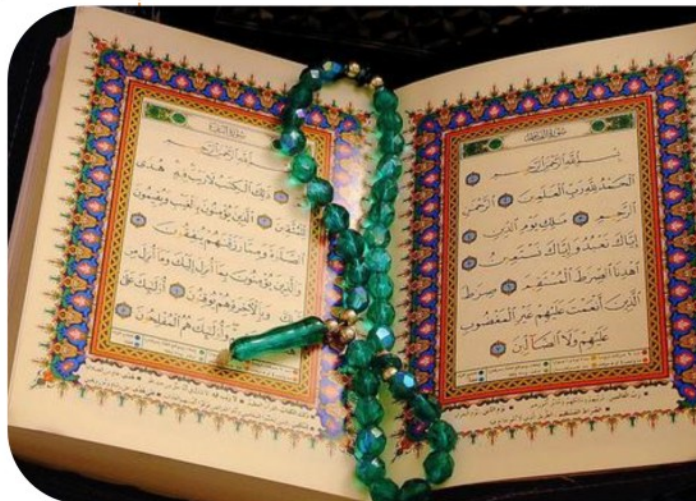 سُورَةُ الفَاتِحَة
بِسْمِ ٱللَّهِ ٱلرَّحْمَٰنِ ٱلرَّحِيمِ
ٱلْحَمْدُ لِلَّهِ رَبِّ ٱلْعَٰلَمِينَ ٱلرَّحْمَٰنِ
ٱلرَّحِيمِ مَٰلِكِ يَوْمِ ٱلدِّينِ
إِيَّاكَ نَعْبُدُ وَإِيَّاكَ نَسْتَعِينُ
ٱهْدِنَا ٱلصِّرَٰطَ ٱلْمُسْتَقِيمَ صِرَٰطَ
ٱلَّذِينَ أَنْعَمْتَ عَلَيْهِمْ غَيْرِ ٱلْمَغْضُوبِ
عَلَيْهِمْ وَلَا ٱلضَّآلِّينَ
سُورَةُ البَقَرَة
بِسْمِ ٱللَّهِ ٱلرَّحْمَٰنِ ٱلرَّحِيمِ
ذَٰلِكَ ٱلْكِتَٰبُ لَا رَيْبَ فِيهِ هُدًى
لِّلْمُتَّقِينَ ٱلَّذِينَ يُؤْمِنُونَ بِٱلْغَيْبِ وَيُقِيمُونَ
ٱلصَّلَوٰةَ وَمِمَّا رَزَقْنَٰهُمْ يُنفِقُونَ
وَٱلَّذِينَ يُؤْمِنُونَ بِمَآ أُنزِلَ إِلَيْكَ وَمَآ أُنزِلَ مِن
وَبِٱلْءَاخِرَةِ هُمْ يُوقِنُونَ أُو۟لَٰٓئِكَ عَلَىٰ
وَأُو۟لَٰٓئِكَ هُمُ ٱلْمُفْلِحُونَ